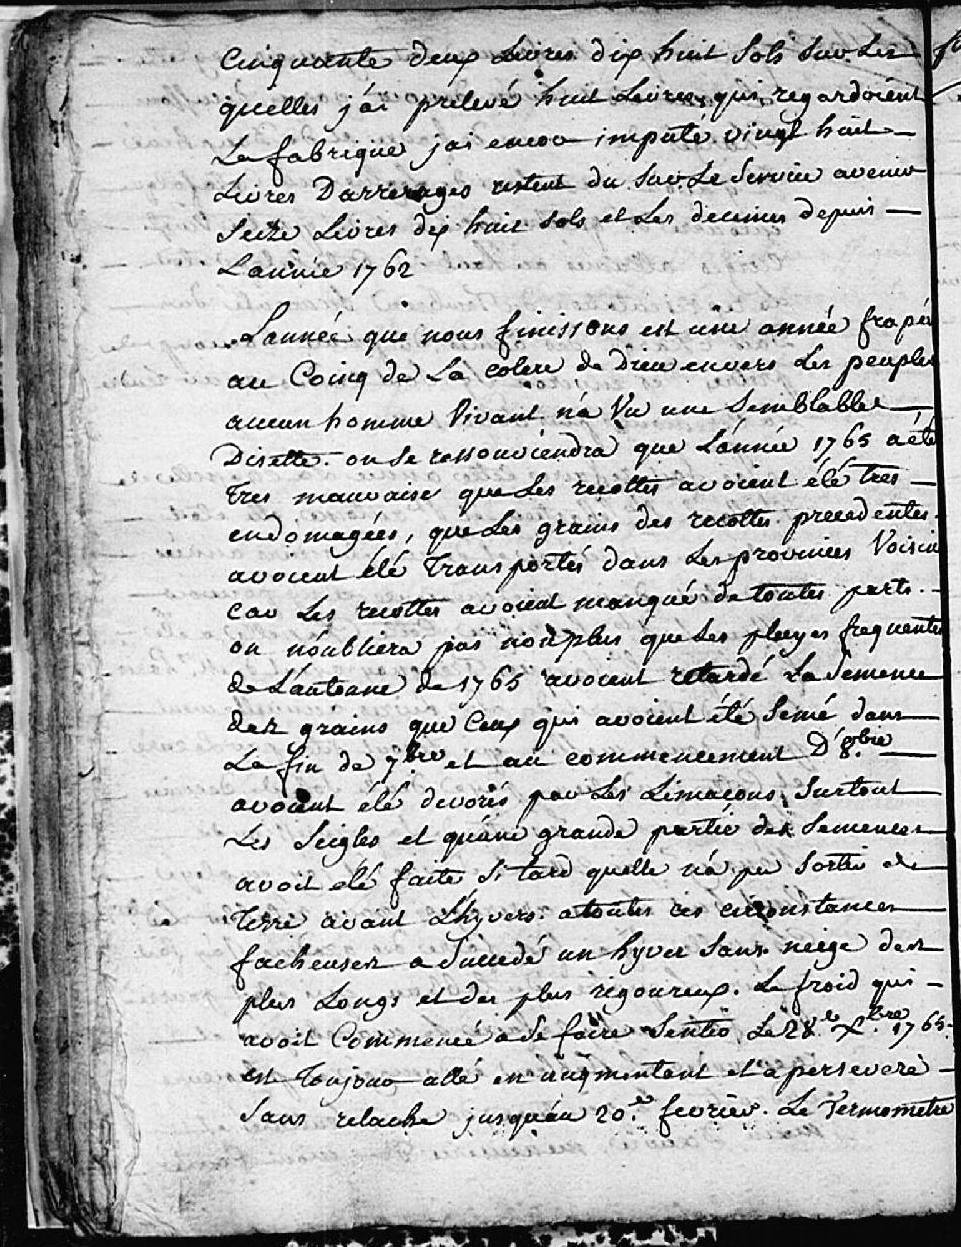 Cinquante deux Livres dix huit Sols Sur Les
quelles j'ai prélevé huit Livres, qui regardoient
La fabrique jai encor imputé vingt huit
Livres Darrerages restent du Sur Le Service avenir
Seize Livres dix huit sols et Les decimes depuis
L'année 1762
L'année que nous finissons est une année frapée
au Coinq de La colere de dieu envers Les peuples
aucun homme Vivant n'a Vu une Semblable
Disette. on Se ressouviendra que L'année 1765 a été
tres mauvaise que Les recoltes avoient été tres
endomagées, que Les grains des recoltes precedentes
avoient été transportés dans Les provinces Voisin
car Les recoltes avoient manqué de toutes parts.
on n'oubliera pas non plus que Les pluyes frequentes
de L'automne de 1765 avoient retardé La Semence
des grains que Ceux qui avoient été Semé dans
La fin de 7bre et au commencement D'8.bre
avoient été devorés par Les Limaçons, Surtout
Les Seigles et qu'une grande partie des Semences
avoit été faite Si tard quelle n'a pu Sortir de
terre avant L'hyver. a toutes ces circonstances
facheuses a Succedé un hyver Sans neige des
plus Longs et des plus rigoureux. Le froid qui
avoit Commencé a Se faire Sentir Le 28.e Xbre 1765.
est toujour allé en augmentant et a perseveré
Sans relache jusqu'au 20.e fevrier. Le Termometre